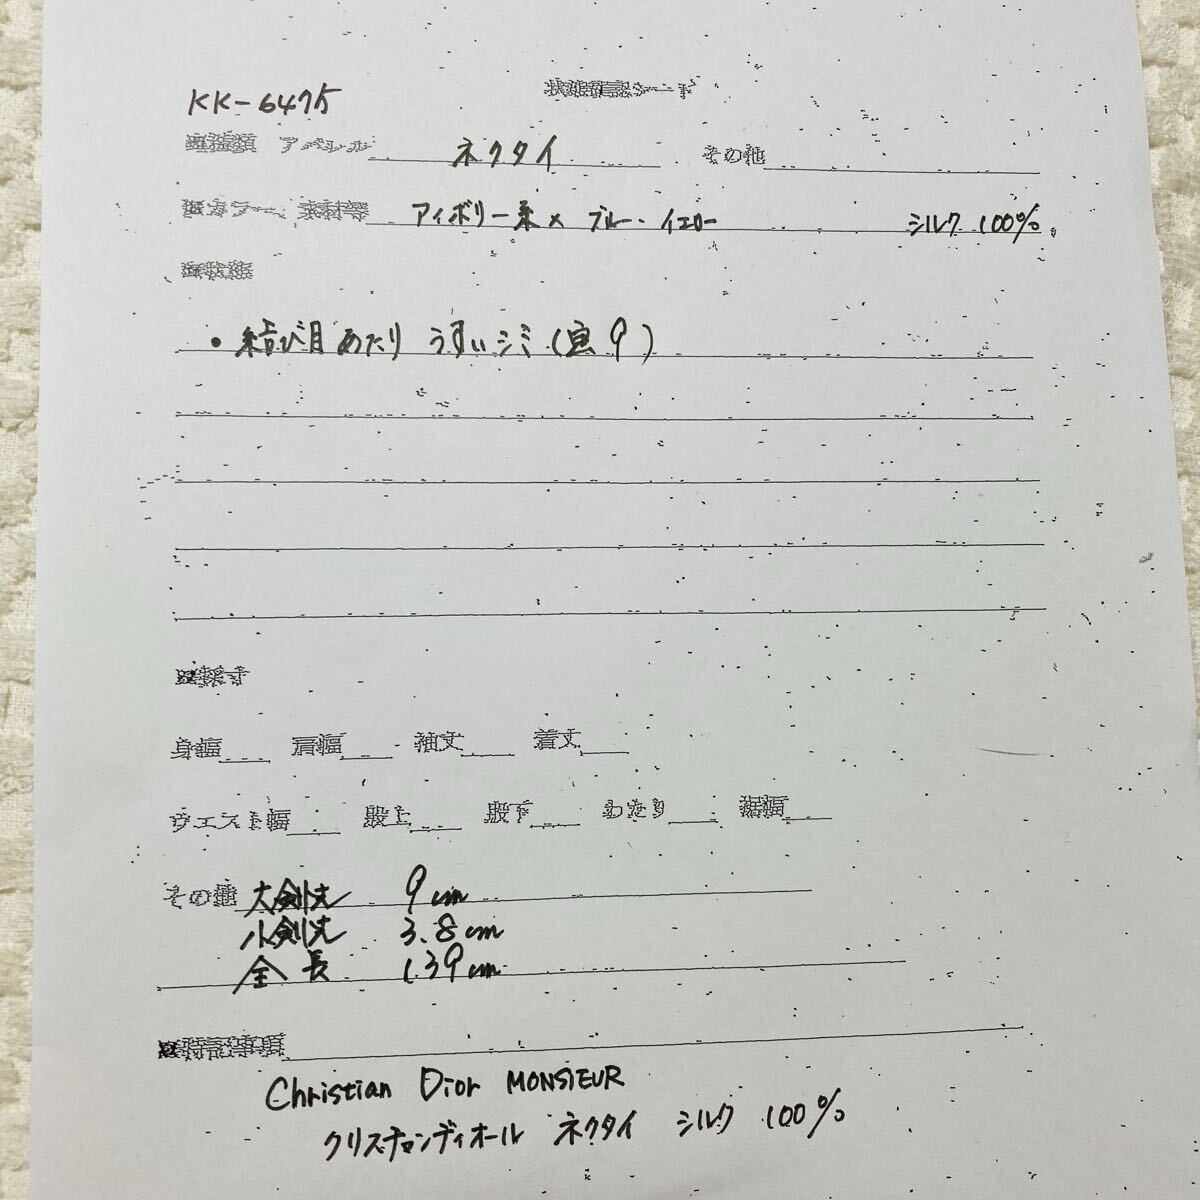 状態確認シート
KK-6475
アパレル ネクタイ その他
カラー、素材等 アイボリー系 × ブルー・イエロー シルク 100%
・結び目あたり うすいシミ(写9)
採寸
身幅 肩幅 袖丈 着丈
ウエスト幅 股上 股下 わたり 裾幅
その他 大剣丈 9cm
小剣丈 3.8cm
全長 139cm
特記事項
Christian Dior MONSIEUR
クリスチャンディオール ネクタイ シルク 100%